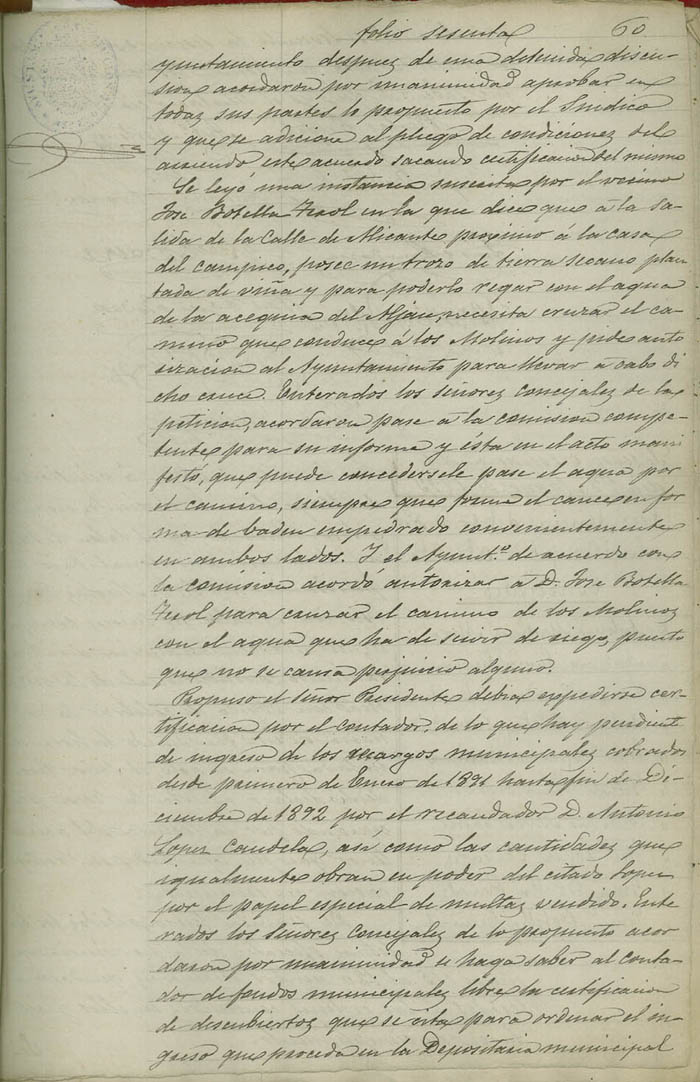 folio sesenta 60
yuntamiento despuez de una detenida discu-
sion acordaron por unanimidad aprobar en
todaz sus partes lo propuesto por el Sindico
y que se adicione al pliego de condicionez del
arriendo este acuerdo sacando certificacion del mismo
Se leyó una instancia suscrita por el vecino
Jose Botella en la que dice que á la sa-
lida de la Calle de Alicante proximo á la casa
del campico, posee un trozo de tierra secano plan-
tada de viña y para poderlo regar con el agua
de la acequia del Aljau, necesita cruzar el ca-
mino que conduce á los Molinos y pide auto
rizacion al Ayuntamiento para llevar á cabo di
cho cauce. Enterados los señorez Concejalez de la
peticion, acordaron pase á la comision compe-
tente para su informe y ésta en el acto mani
festó, que puede concedersele pase el agua por
el camino, siempre que forme el cauce en for
ma de baden empedrado convenientemente
en ambos lados. Y el Ayunt.º de acuerdo con
la comision acordó autorizar á D. Jose Botella
para cruzar el camino de los Molinoz
con el agua que ha de servir de riego, puesto
que no se causa perjuicio alguno.
Propuso el señor Presidente debia expedirse cer-
tificacion por el contador, de lo que hay pendiente
de ingreso de los recargos municipalez cobrados
desde primero de Enero de 1891 hasta fin de Di-
ciembre de 1892 por el recaudador D. Antonio
Lopez Candela, asi como las cantidadez que
igualmente obran en poder del citado Lopez
por el papel especial de multaz vendido. Ente
rados los señorez Concejalez de lo propuesto acor
daron por unanimidad se haga saber al conta-
dor de fondos municipalez libre la certificacion
de descubiertoz que se cita para ordenar el in-
greso que proceda en la Depositaria municipal